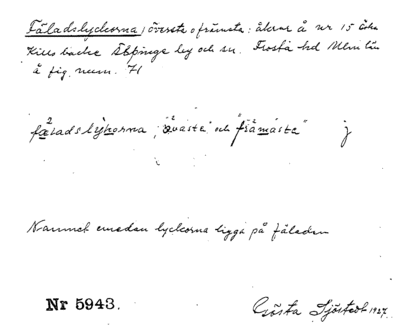 Fäladslyckorna, översta o främsta: åkrar å nr 15
Kills backe Äspinge by och sn. Frosta hd Mlm län
å fig. num. 71
fæladslykorna, "øvasta" och "främasta" j
Namnet emedan lyckorna ligga på fäladen
Nr 5943. Gösta Sjöstedt 1927.